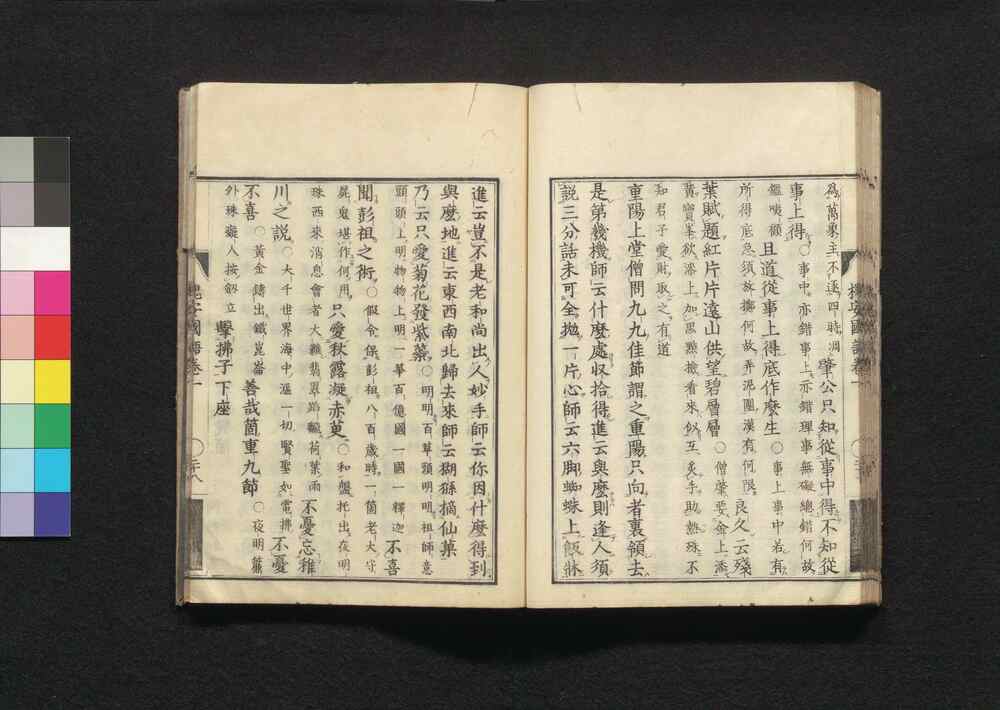 爲萬象主不逐四時凋 肇公只知從事中得不知從
事上得 ○事中亦錯事上亦錯理事無礙總錯何故
且道從事上得底作麼生 ○事上事中若有
所得底急須放擲何故弄泥團漢有何限 良久云殘
葉賦題紅片片遠山供望碧層層 ○僧繇要金上添
黃寶峯欲漆上加黑點撿看來似互炙手助熱殊不
知君子愛財取之有道
重陽上堂僧問九九佳節謂之重陽只向者裏領去
是第幾機師云什麼處収拾得進云與麼則逢人須
説三分話未可全抛一片心師云六脚蜘蛛上飯牀
進云豈不是老和尚出人妙手師云你因什麼得到
與麼地進云東西南北歸去來師云猢猻摘仙菓
乃云只愛菊花發紫蘂 ○明明百草頭明明祖師意
頭頭上明物物上明一華百億國一國一釋迦 不喜
聞彭祖之術 ○假令保彭祖八百歲時一箇老大守
屍鬼堪作何用 只愛秋露凝赤萸 ○和盤托出夜明
珠西來消息會者大難翡翠蹈飜荷葉雨 不憂忘稚
川之説 ○大千世界海中漚一切賢聖如電拂 不憂
不喜 ○黃金鑄出鐵崑崙 善哉箇重九節 ○夜明簾
外珠癡人按劔立 擊拂子下座
槐安國語卷一 ○二十八